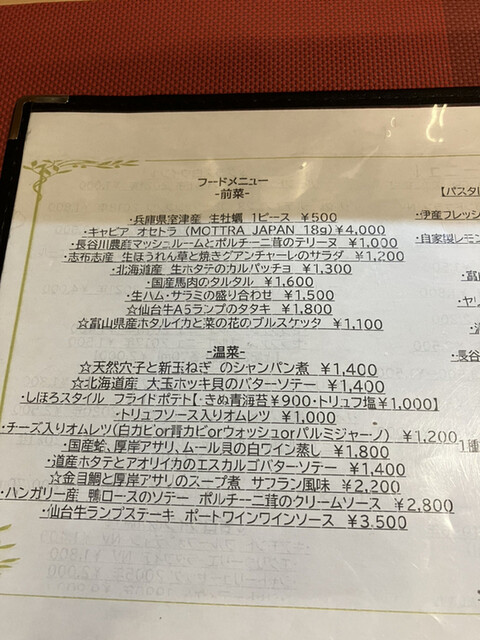 フードメニュー
-前菜-
・兵庫県室津産 生牡蠣 1ピース ¥500
・キャビア オセトラ（MOTTRA JAPAN 18g）¥4,000
・長谷川農産マッシュルームとポルチーニ茸のテリーヌ ¥1,000
・志布志産 生ほうれん草と焼きグアンチャーレのサラダ ¥1,200
・北海道産 生ホタテのカルパッチョ ¥1,300
・国産馬肉のタルタル ¥1,600
・生ハム・サラミの盛り合わせ ¥1,500
☆仙台牛A5ランプのタタキ ¥1,800
☆富山県産ホタルイカと菜の花のブルスケッタ ¥1,100
-温菜-
☆天然穴子と新玉ねぎ のシャンパン煮 ¥1,400
☆北海道産 大玉ホッキ貝のバターソテー ¥1,400
・しほろスタイル フライドポテト【・きぬ青海苔¥900・トリュフ塩¥1,000】
・トリュフソース入りオムレツ ¥1,000
・チーズ入りオムレツ（白カビor青カビorウォッシュorパルミジャーノ） ¥1,200
・国産蛤、厚岸アサリ、ムール貝の白ワイン蒸し ¥1,800
・道産ホタテとアオリイカのエスカルゴバターソテー ¥1,400
☆金目鯛と厚岸アサリのスープ煮 サフラン風味 ¥2,200
・ハンガリー産 鴨ロースのソテー ポルチーニ茸のクリームソース ¥2,800
・仙台牛ランプステーキ ポートワインワインソース ¥3,500
【パスタ
・伊産フレッシ
・自家製レモン
・富
・ヤリ
・富
・長谷
1種